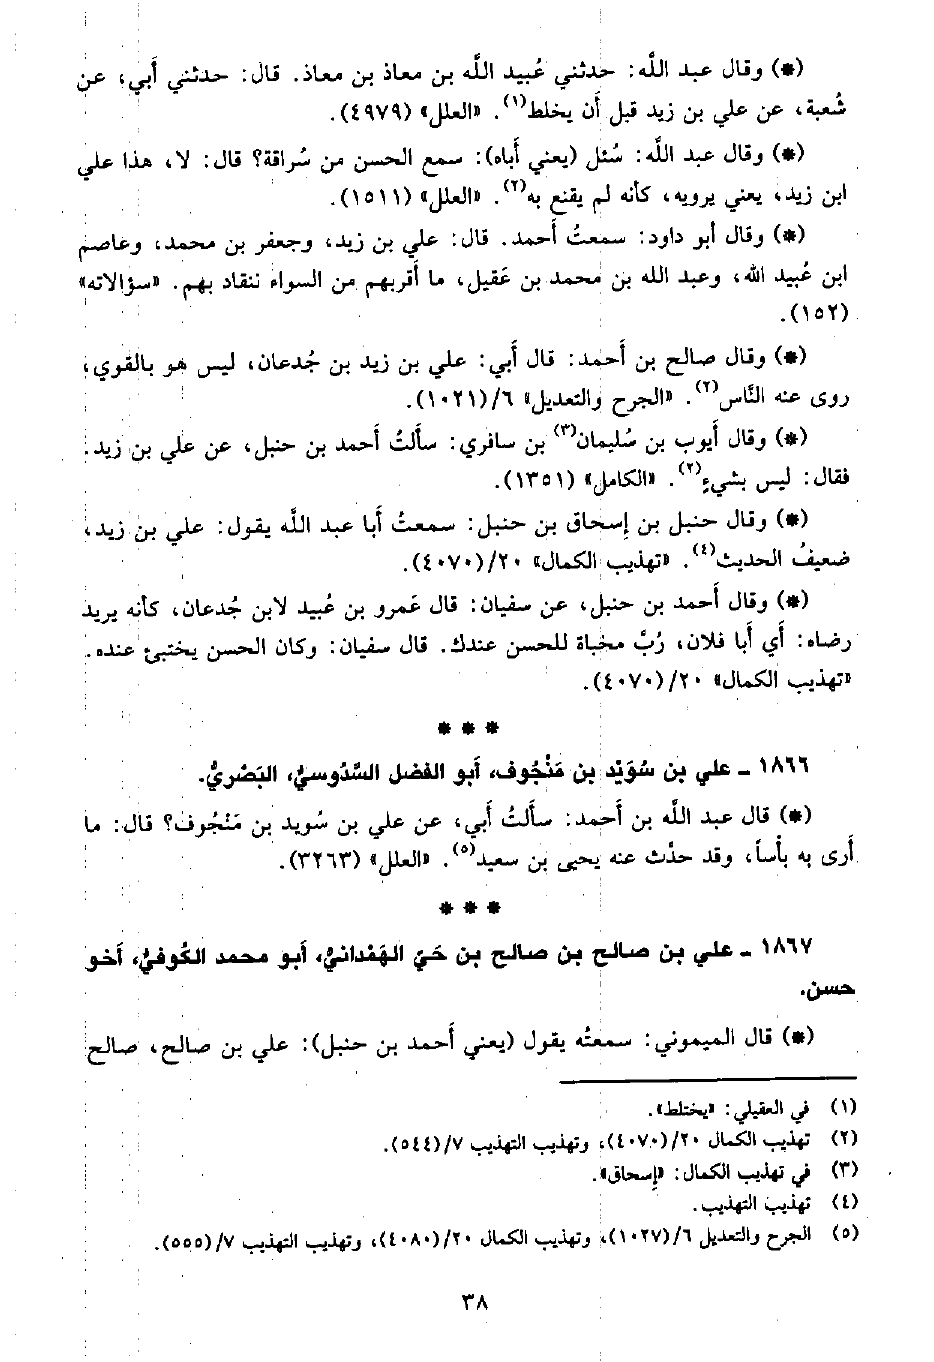 (*) وقال عبد اللَّه: حدثني عُبيد اللَّه بن معاذ بن معاذ. قال: حدثني أَبي، عن
شُعبة، عن علي بن زيد قبل أَن يخلط(١). «العلل» (٤٩٧٩).
(*) وقال عبد اللَّه: سُئل (يعني أَباه): سمع الحسن من سُراقة؟ قال: لا، هذا علي
ابن زيد، يعني يرويه، كأنه لم يقنع به(٢). «العلل» (١٥١١).
(*) وقال أبو داود: سمعتُ أَحمد. قال: علي بن زيد، وجعفر بن محمد، وعاصم
ابن عُبيد الله، وعبد الله بن محمد بن عَقيل، ما أقربهم من السواء ننقاد بهم. «سؤالاته»
(١٥٢).
(*) وقال صالح بن أَحمد: قال أَبي: علي بن زيد بن جُدعان، ليس هو بالقوي،
روى عنه النَّاس(٢). «الجرح والتعديل» ٦/(١٠٢١).
(*) وقال أَيوب بن سُليمان(٣) بن سافري: سأَلتُ أَحمد بن حنبل، عن علي بن زيد.
فقال: ليس بشيءٍ(٢). «الكامل» (١٣٥١).
(*) وقال حنبل بن إِسحاق بن حنبل: سمعتُ أَبا عبد اللَّه يقول: علي بن زيد،
ضعيفُ الحديث(٤). «تهذيب الكمال» ٢٠/(٤٠٧٠).
(*) وقال أَحمد بن حنبل، عن سفيان: قال عَمرو بن عُبيد لابن جُدعان، كأنه يريد
رضاه: أَي أَبا فلان، رُبَّ مخباة للحسن عندك. قال سفيان: وكان الحسن يختبئ عنده.
«تهذيب الكمال» ٢٠/(٤٠٧٠).
* * *
١٨٦٦ ـ علي بن سُوَيْد بن مَنْجُوف، أبو الفضل السَّدُوسيُّ، البَصْريُّ.
(*) قال عبد اللَّه بن أَحمد: سأَلتُ أَبي، عن علي بن سُويد بن مَنْجُوف؟ قال: ما
أَرى به بأساً، وقد حدَّث عنه يحيى بن سعيد(٥). «العلل» (٣٢٦٣).
* * *
١٨٦٧ ـ علي بن صالح بن صالح بن حَيّ الهَمْدانيُّ، أبو محمد الكُوفيُّ، أخو
حسن.
(*) قال الميموني: سمعتُه يقول (يعني أَحمد بن حنبل): علي بن صالح، صالح
(١) في العقيلي: «يختلط».
(٢) تهذيب الكمال ٢٠/(٤٠٧٠)، وتهذيب التهذيب ٧/(٥٤٤).
(٣) في تهذيب الكمال: «إسحاق».
(٤) تهذيب التهذيب.
(٥) الجرح والتعديل ٦/(١٠٢٧)، وتهذيب الكمال ٢٠/(٤٠٨٠)، وتهذيب التهذيب ٧/(٥٥٥).
٣٨